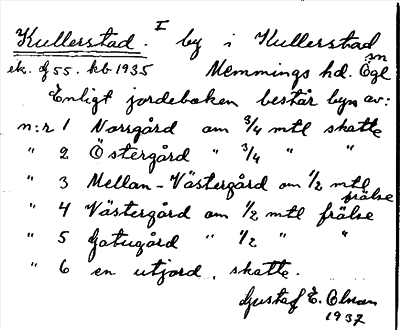 Kullerstad. I by i Kullerstad sn
ek. bl 55. kb 1935 Memmings hd. Ögl
Enligt jordeboken består byn av:
n:r 1 Norrgård om 3/4 mtl skatte
" 2 Östergård " 3/4 " "
" 3 Mellan-Västergård om 1/2 mtl frälse
" 4 Västergård om 1/2 mtl frälse
" 5 Gatugård " 1/2 " "
" 6 en utjord, skatte.
Gustaf E.
1937